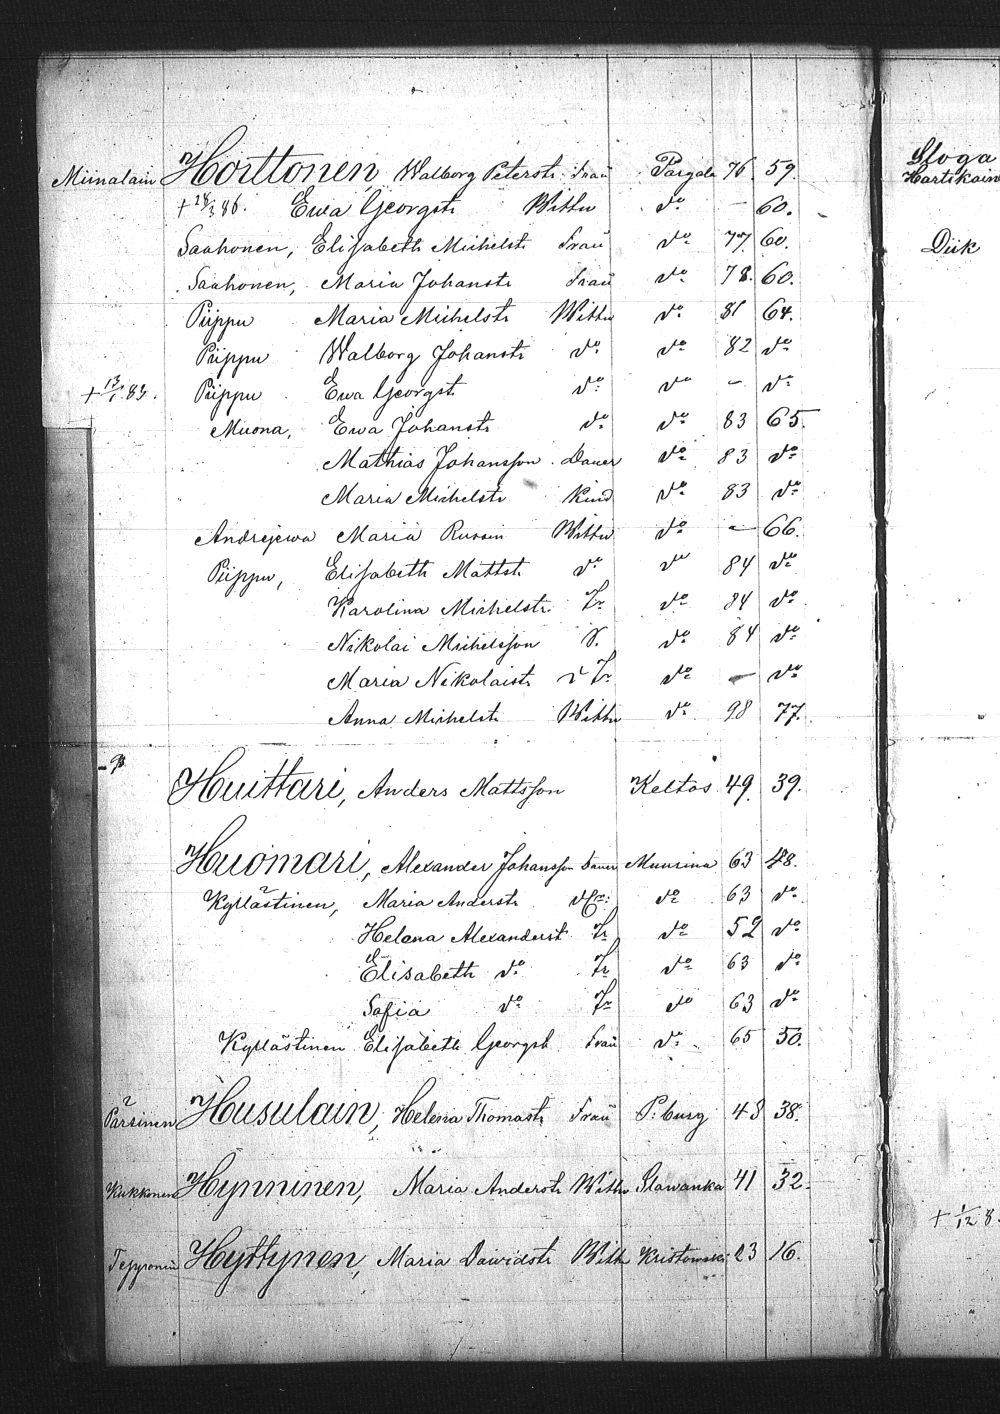 Miinalain Houttonen Walborg Peterstr Frau Pargola 76. 59.
+ 28/3 86. Ewa Georgstr Wittw do – 60.
Saahonen, Elisabeth Michelstr Frau do 77 60.
Saahonen, Maria Johanstr Frau do 78. 60.
Piippu Maria Michelstr Wittw do 81 64.
Piippu Walborg Johanstr do do 82 do
+ 13/1. 83. Piippu Ewa Georgstr do do – do
Muona, Ewa Johanstr do do 83 65.
Mathias Johansson Bauer do 83 do
Maria Michelstr Kind do 83 do
Andrejewa Maria Russin Wittw do – 66.
Piippu, Elisabeth Mattstr do do 84 do
Karolina Michelstr Tr do 84 do
Nikolai Michelsson S. do 84 do
Maria Nikolaistr Tr do – do
Anna Michelstr Wittw do 98 77.
Huittari, Anders Mattsson Keltos 49. 39.
Huomari, Alexander Johansson Bauer Muurina 63 48.
Kyllästinen, Maria Anderstr do 63 do
Helena Alexanderstr Tr do 52 do
Elisabeth do Tr do 63 do
Sofia do Tr do 63 do
Kyllästinen Elisabeth Georgstr Frau do 65 50.
Pärsinen Husulain, Helena Thomastr Frau P:burg 48 38.
Kukkonen Hynninen, Maria Anderstr Wittw Slawanka 41 32.
Tepponen Hyttynen, Maria Dawidstr Wittw Kristowski 23 16.
Sloga
Hartikain
Diik
+ 1/12 8